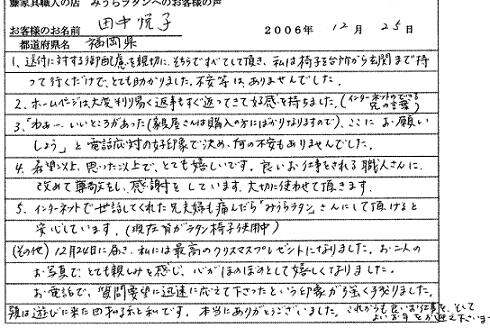 籐家具職人の店 みうらラタンへのお客様の声
お客様のお名前 田中悦子 2006年12月25日
都道府県名 福岡県
1、送付に対する御配慮を親切に、そちらですべてして頂き、私は椅子を台所から玄関まで持
って行くだけで、とても助かりました。不安等はありませんでした。
2、ホームページは大変判り易く返事もすぐ返ってきて好感を持ちました。(インターネットのできる兄の言葉)
3、「わぁー、いいところがあった(家具屋さんは購入の方にばかりなりますので)、ここにお願い
しよう」と電話応対の好印象で決め、何の不安もありませんでした。
4、希望以上、思った以上で、とても嬉しいです。良いお仕事をされる職人さんに
改めて尊敬をし、感謝をしています。大切に使わせて頂きます。
5、インターネットで世話してくれた兄夫婦も痛んだら「みうらラタン」さんにして頂けると
安心しています。(現在皆がラタン椅子使用中)
(その他)12月24日に届き、私には最高のクリスマスプレゼントになりました。お二人の
お写真で、とても親しみを感じ、心がほのぼのとして嬉しくなりました。
お電話で、質問要望に迅速に応えて下さったという印象が強く残りました。
類は遊びに来た お和 私です。本当にありがとうございました。これからも良いお仕事を、そして
よいお年をお迎え下さいませ